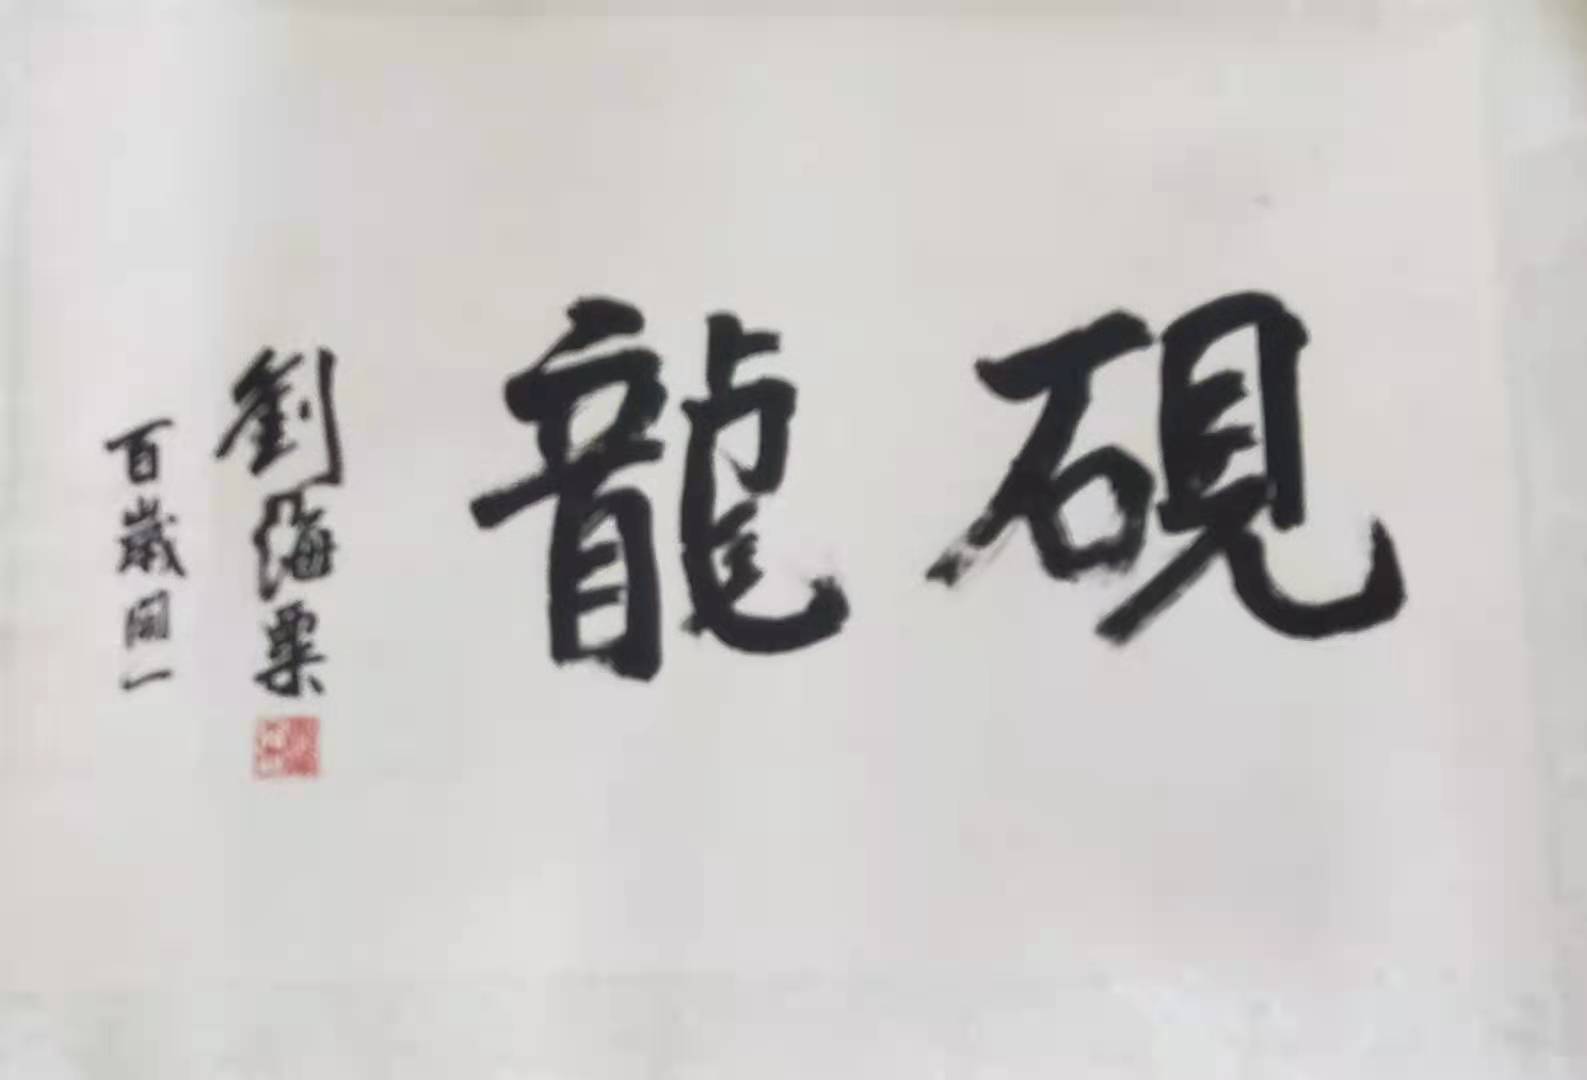 硯龍
劉海粟
百歲開一